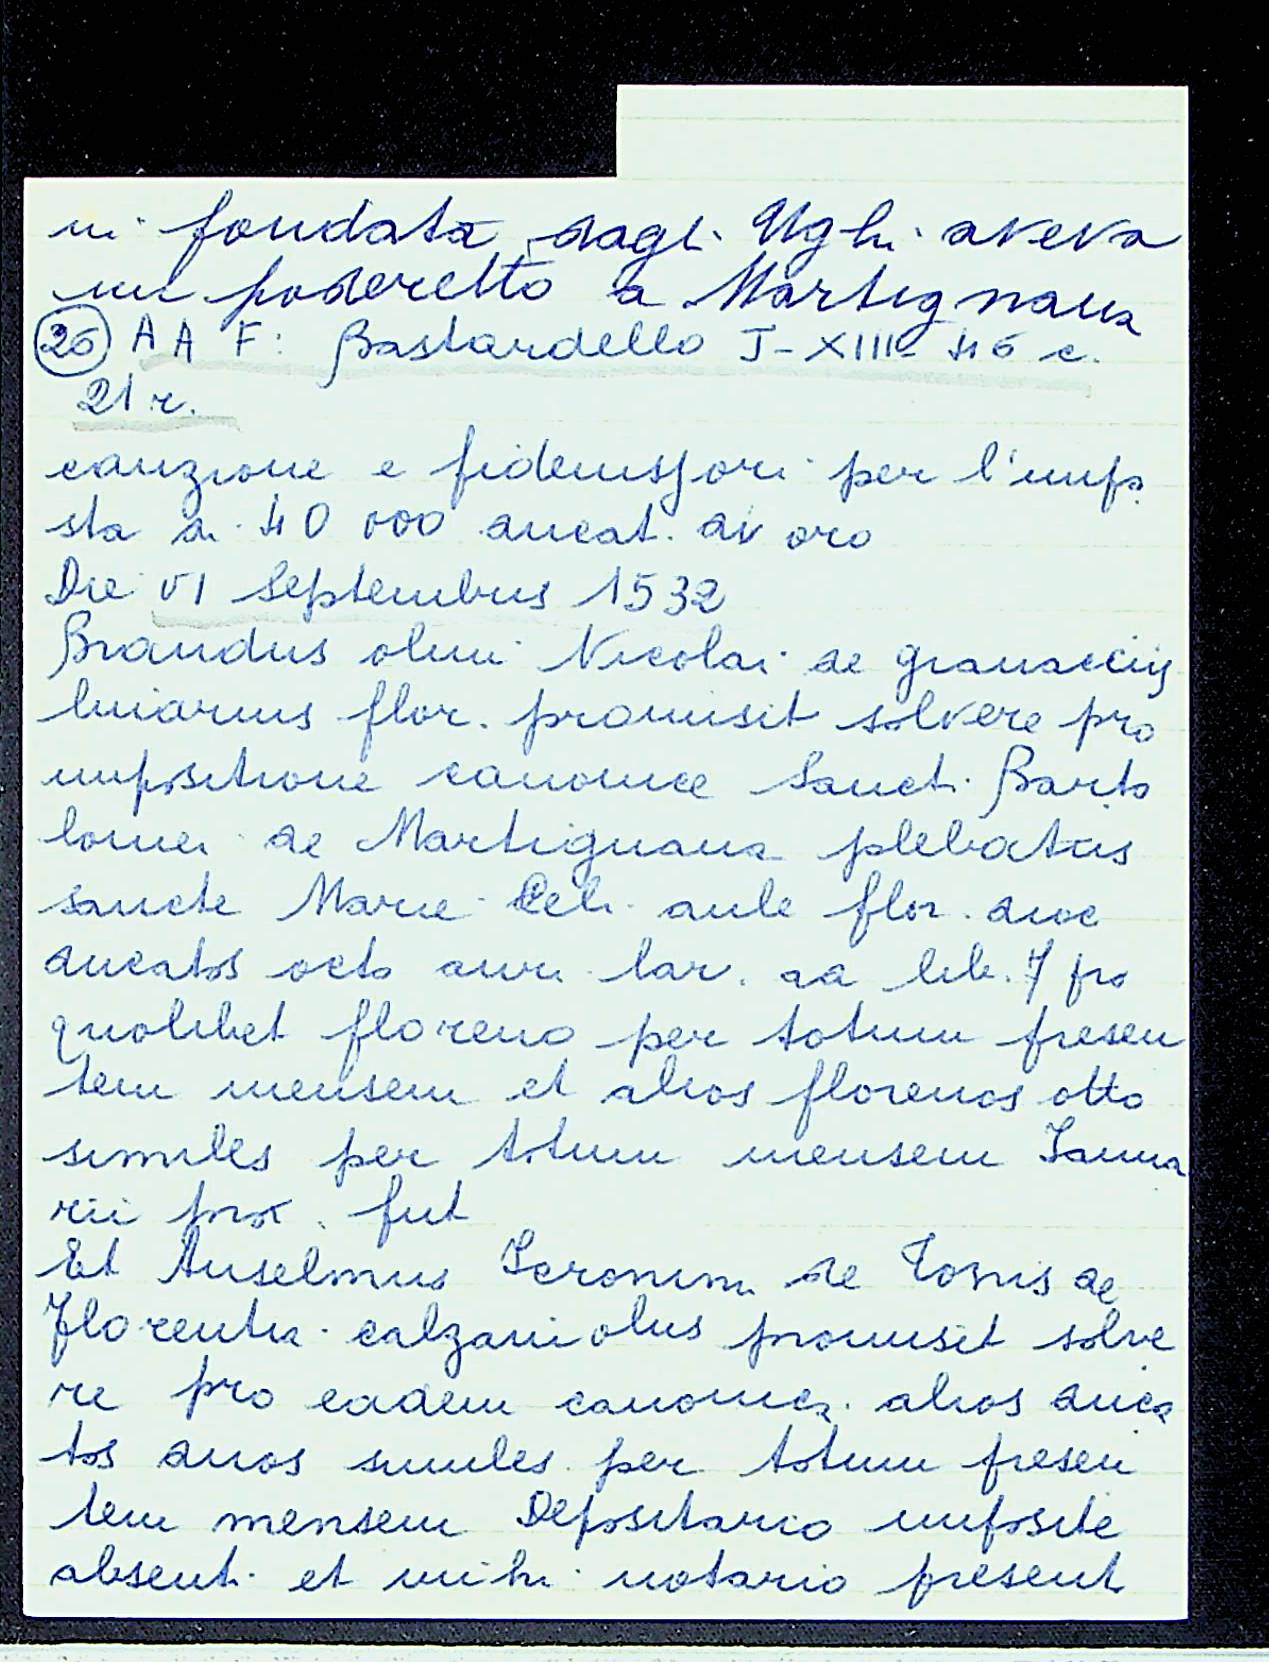 ni fondata dagli Ughi aveva
un poderetto a Martignana
26 A A F: Bastardello J-XIII-46 c.
21 r.
cauzione e fideiussori per l'impo
sta di 40 000 ducati di oro
Die VI Septembris 1532
Brandus olim Nicolai de granacciis
liniarius flor. promisit solvere pro
impositione canonice Sancti Barto
lomei de Martignana plebatus
sancte Marie Celi aule flor. dioc
ducatos octo auri lar. ad lib. 7 pro
quolibet floreno per totum presen
tem mensem et alios florenos otto
similes per totum mensem Janua
rii prox. fut
Et Anselmus Ieronimi de
Florentia calzaiuolus promisit solve
re pro eadem canonica alios duca
tos duos similes per totum presen
tem mensem Depositario imposite
absenti et mihi notario presenti